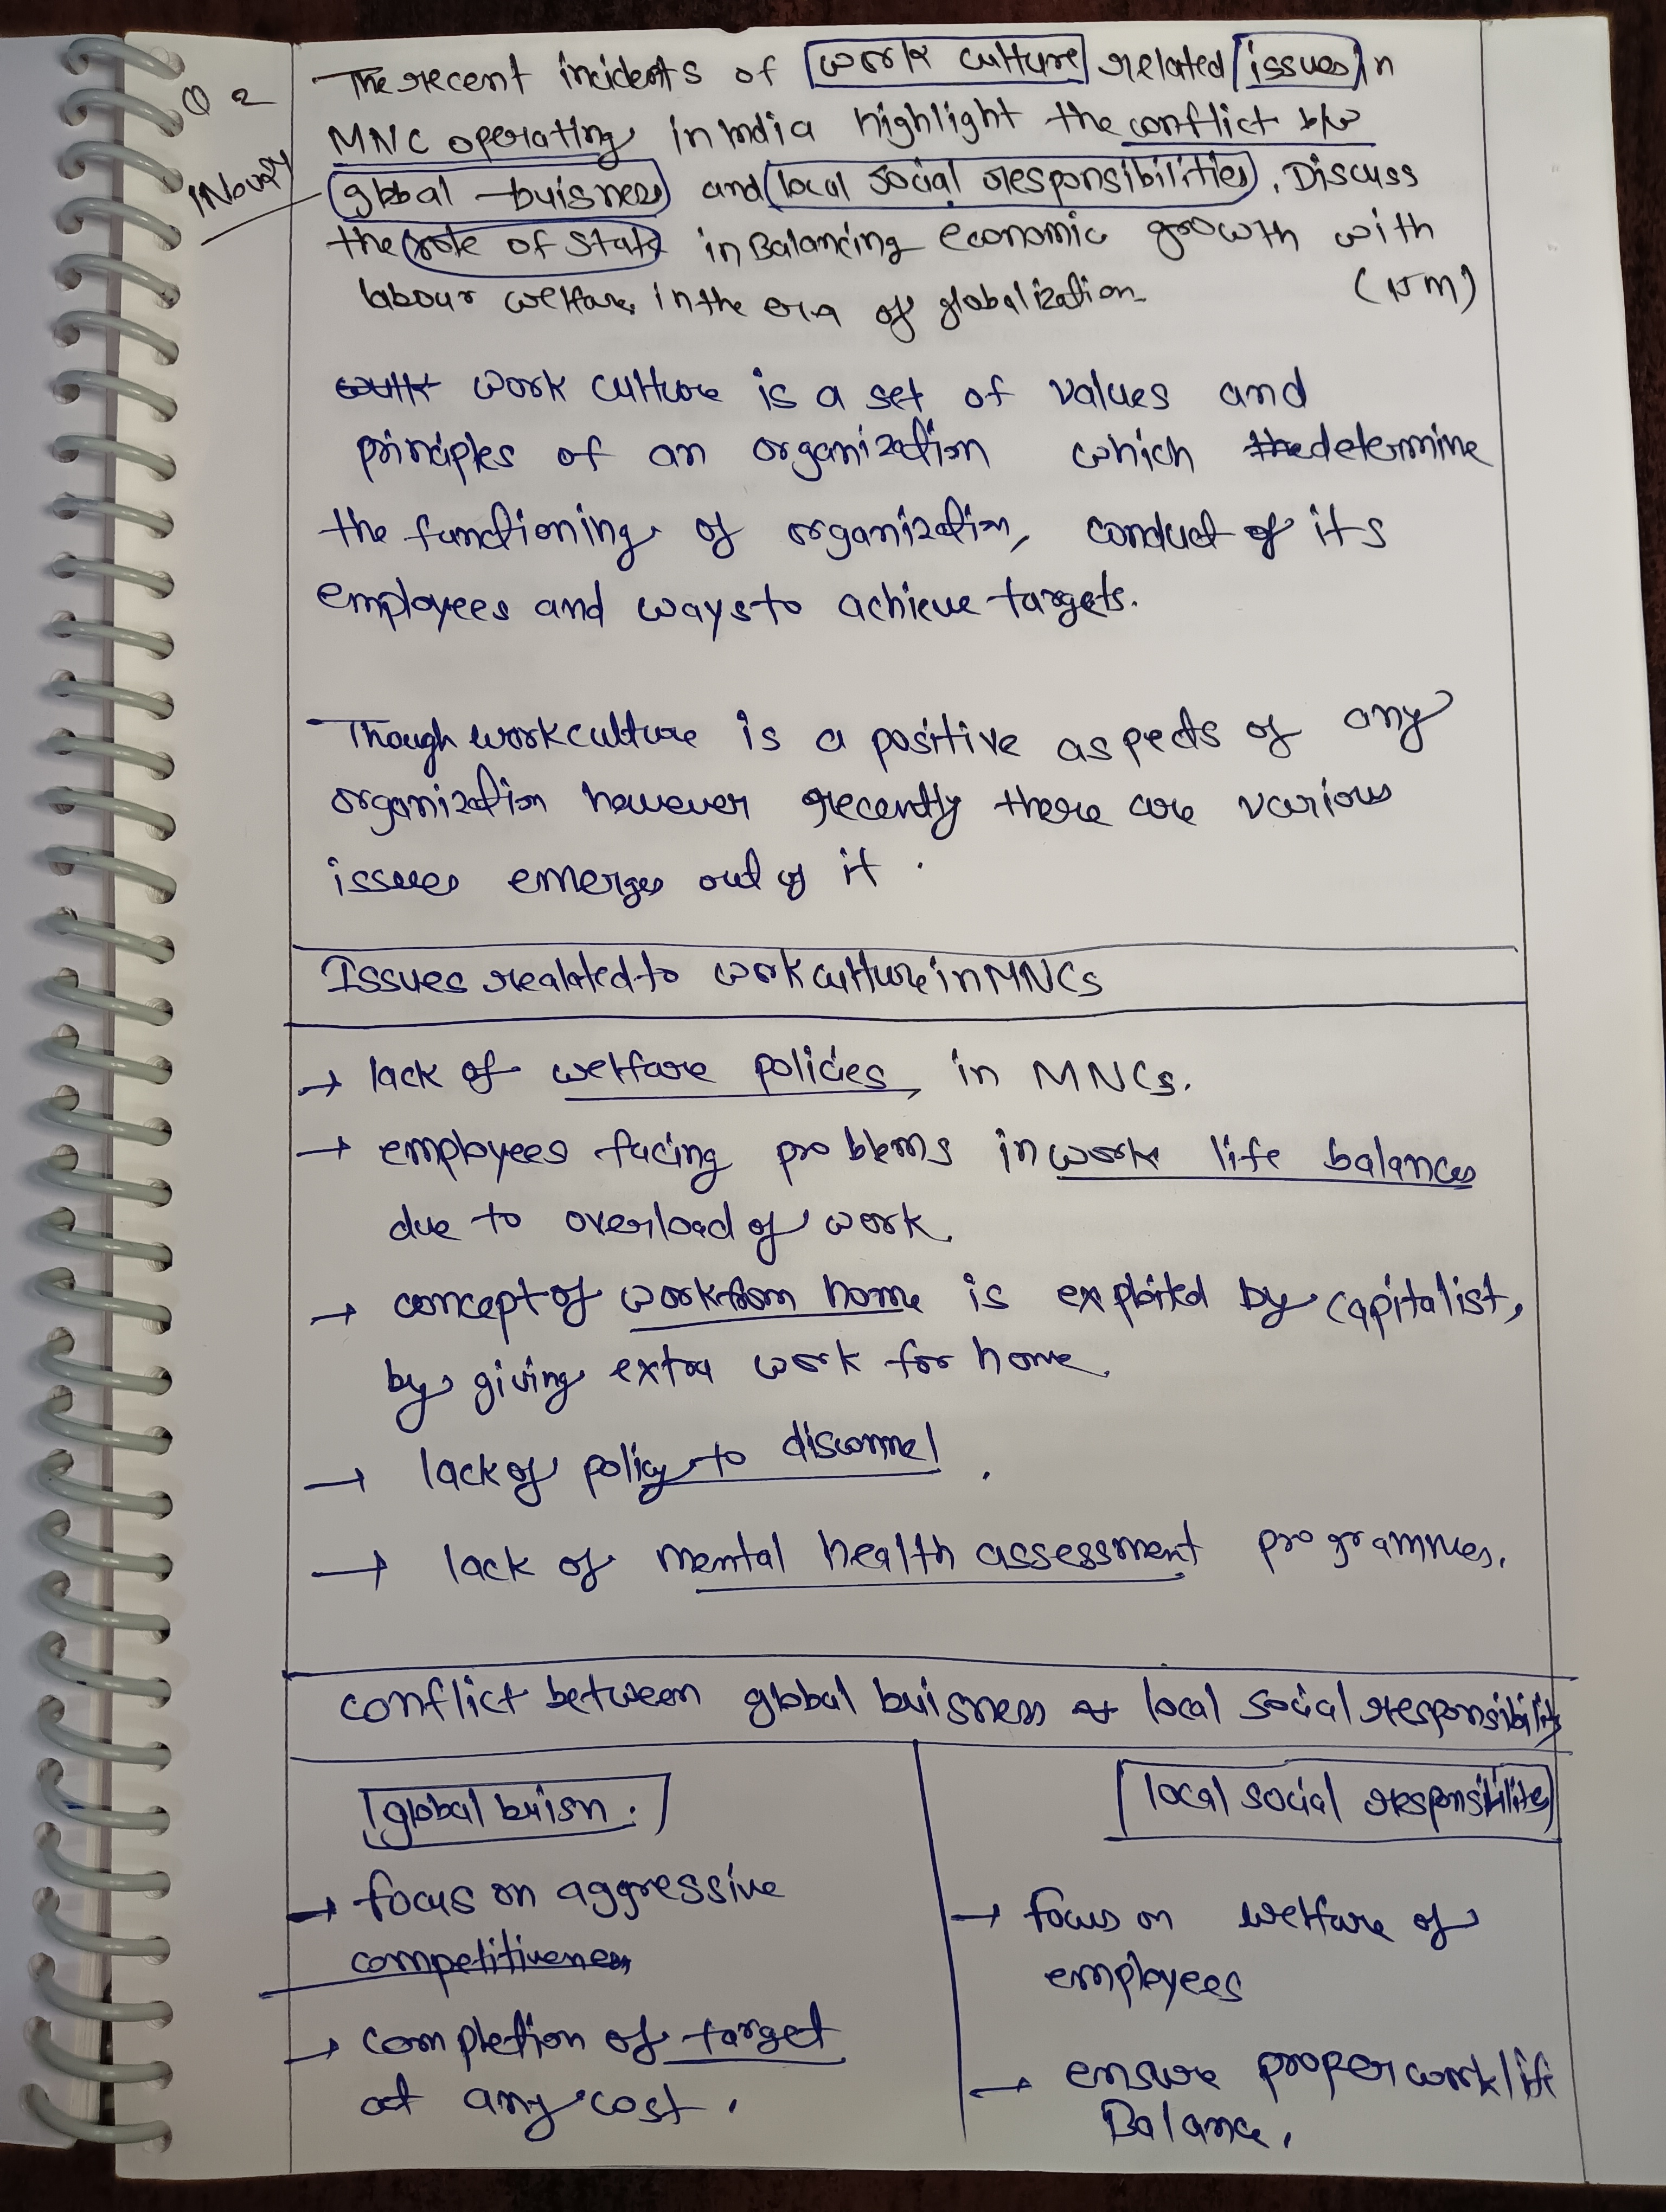 Q 2
The recent incidents of work culture related issues in
MNC operating in India highlight the conflict b/w
global buisness and local social responsibilities. Discuss
the role of State in Balancing economic growth with
labour welfare in the era of globalization. (15 m)
work culture is a set of values and
principles of an organization which the determine
the functioning of organization, conduct of its
employees and ways to achieve targets.
Though work culture is a positive aspects of any
organization however recently there are various
issues emerges out of it.
Issues realated to work culture in MNCs
→ lack of welfare policies in MNCs.
→ employees facing problems in work life balances
due to overload of work.
→ concept of work from home is exploited by capitalist,
by giving extra work for home.
→ lack of policy to disconnel.
→ lack of mental health assessment programmes.
conflict between global buisness & local social responsibility
global buisn. local social responsibilites
→ focus on aggressive
competitiveness
→ focus on welfare of
employees
→ completion of target
at any cost.
→ ensure proper work life
Balance.